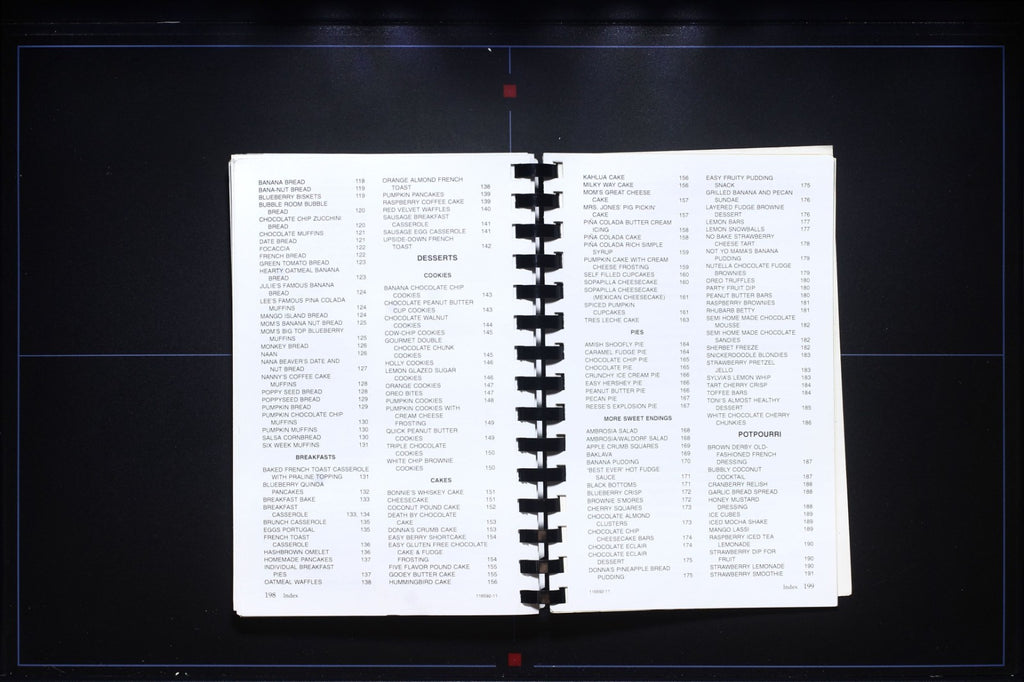 BANANA BREAD 118
BANA-NUT BREAD 119
BLUEBERRY BISKETS 119
BUBBLE ROOM BUBBLE
BREAD 120
CHOCOLATE CHIP ZUCCHINI
BREAD 120
CHOCOLATE MUFFINS 121
DATE BREAD 121
FOCACCIA 122
FRENCH BREAD 122
GREEN TOMATO BREAD 123
HEARTY OATMEAL BANANA
BREAD 123
JULIE'S FAMOUS BANANA
BREAD 124
LEE'S FAMOUS PINA COLADA
MUFFINS 124
MANGO ISLAND BREAD 124
MOM'S BANANA NUT BREAD 125
MOM'S BIG TOP BLUEBERRY
MUFFINS 125
MONKEY BREAD 126
NAAN 126
NANA BEAVER'S DATE AND
NUT BREAD 127
NANNY'S COFFEE CAKE
MUFFINS 128
POPPY SEED BREAD 128
POPPYSEED BREAD 129
PUMPKIN BREAD 129
PUMPKIN CHOCOLATE CHIP
MUFFINS 130
PUMPKIN MUFFINS 130
SALSA CORNBREAD 130
SIX WEEK MUFFINS 131
BREAKFASTS
BAKED FRENCH TOAST CASSEROLE
WITH PRALINE TOPPING 131
BLUEBERRY QUINOA
PANCAKES 132
BREAKFAST BAKE 133
BREAKFAST
CASSEROLE 133, 134
BRUNCH CASSEROLE 135
EGGS PORTUGAL 135
FRENCH TOAST
CASSEROLE 136
HASHBROWN OMELET 136
HOMEMADE PANCAKES 137
INDIVIDUAL BREAKFAST
PIES 137
OATMEAL WAFFLES 138
ORANGE ALMOND FRENCH
TOAST 138
PUMPKIN PANCAKES 139
RASPBERRY COFFEE CAKE 139
RED VELVET WAFFLES 140
SAUSAGE BREAKFAST
CASSEROLE 141
SAUSAGE EGG CASSEROLE 141
UPSIDE-DOWN FRENCH
TOAST 142
DESSERTS
COOKIES
BANANA CHOCOLATE CHIP
COOKIES 143
CHOCOLATE PEANUT BUTTER
CUP COOKIES 143
CHOCOLATE WALNUT
COOKIES 144
COW-CHIP COOKIES 145
GOURMET DOUBLE
CHOCOLATE CHUNK
COOKIES 145
HOLLY COOKIES 146
LEMON GLAZED SUGAR
COOKIES 146
ORANGE COOKIES 147
OREO BITES 147
PUMPKIN COOKIES 148
PUMPKIN COOKIES WITH
CREAM CHEESE
FROSTING 149
QUICK PEANUT BUTTER
COOKIES 149
TRIPLE CHOCOLATE
COOKIES 150
WHITE CHIP BROWNIE
COOKIES 150
CAKES
BONNIE'S WHISKEY CAKE 151
CHEESECAKE 151
COCONUT POUND CAKE 152
DEATH BY CHOCOLATE
CAKE 153
DONNA'S CRUMB CAKE 153
EASY BERRY SHORTCAKE 154
EASY GLUTEN FREE CHOCOLATE
CAKE & FUDGE
FROSTING 154
FIVE FLAVOR POUND CAKE 155
GOOEY BUTTER CAKE 155
HUMMINGBIRD CAKE 156
198 Index
KAHLUA CAKE 156
MILKY WAY CAKE 156
MOM'S GREAT CHEESE
CAKE 157
MRS. JONES' PIG PICKIN'
CAKE 157
PIÑA COLADA BUTTER CREAM
ICING 158
PIÑA COLADA CAKE 158
PIÑA COLADA RICH SIMPLE
SYRUP 159
PUMPKIN CAKE WITH CREAM
CHEESE FROSTING 159
SELF FILLED CUPCAKES 160
SOPAPILLA CHEESECAKE 160
SOPAPILLA CHEESECAKE
(MEXICAN CHEESECAKE) 161
SPICED PUMPKIN
CUPCAKES 161
TRES LECHE CAKE 163
PIES
AMISH SHOOFLY PIE 164
CARAMEL FUDGE PIE 164
CHOCOLATE CHIP PIE 165
CHOCOLATE PIE 165
CRUNCHY ICE CREAM PIE 166
EASY HERSHEY PIE 166
PEANUT BUTTER PIE 166
PECAN PIE 167
REESE'S EXPLOSION PIE 167
MORE SWEET ENDINGS
AMBROSIA SALAD 168
AMBROSIA/WALDORF SALAD 168
APPLE CRUMB SQUARES 169
BAKLAVA 169
BANANA PUDDING 170
"BEST EVER" HOT FUDGE
SAUCE 171
BLACK BOTTOMS 171
BLUEBERRY CRISP 172
BROWNIE S'MORES 172
CHERRY SQUARES 173
CHOCOLATE ALMOND
CLUSTERS 173
CHOCOLATE CHIP
CHEESECAKE BARS 174
CHOCOLATE ECLAIR 174
CHOCOLATE ECLAIR
DESSERT 175
DONNA'S PINEAPPLE BREAD
PUDDING 175
EASY FRUITY PUDDING
SNACK 175
GRILLED BANANA AND PECAN
SUNDAE 176
LAYERED FUDGE BROWNIE
DESSERT 176
LEMON BARS 177
LEMON SNOWBALLS 177
NO BAKE STRAWBERRY
CHEESE TART 178
NOT YO MAMA'S BANANA
PUDDING 179
NUTELLA CHOCOLATE FUDGE
BROWNIES 179
OREO TRUFFLES 180
PARTY FRUIT DIP 180
PEANUT BUTTER BARS 180
RASPBERRY BROWNIES 181
RHUBARB BETTY 181
SEMI HOME MADE CHOCOLATE
MOUSSE 182
SEMI HOME MADE CHOCOLATE
SANDIES 182
SHERBET FREEZE 182
SNICKERDOODLE BLONDIES 183
STRAWBERRY PRETZEL
JELLO 183
SYLVIA'S LEMON WHIP 183
TART CHERRY CRISP 184
TOFFEE BARS 184
TONI'S ALMOST HEALTHY
DESSERT 185
WHITE CHOCOLATE CHERRY
CHUNKIES 186
POTPOURRI
BROWN DERBY OLD-
FASHIONED FRENCH
DRESSING 187
BUBBLY COCONUT
COCKTAIL 187
CRANBERRY RELISH 188
GARLIC BREAD SPREAD 188
HONEY MUSTARD
DRESSING 188
ICE CUBES 189
ICED MOCHA SHAKE 189
MANGO LASSI 189
RASPBERRY ICED TEA
LEMONADE 190
STRAWBERRY DIP FOR
FRUIT 190
STRAWBERRY LEMONADE 190
STRAWBERRY SMOOTHIE 191
Index 199